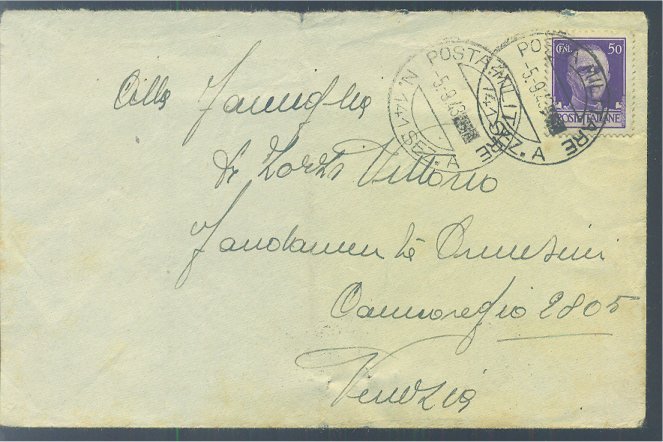 POSTA MILITARE
N. 141 SEZ. A
-5.9.43
POSTA MILITARE
N. 141 SEZ. A
-5.9.43
CENT. 50
POSTE ITALIANE
Alla Famiglia
De Zorzi Vittorio
Fondamenta Ormesini
Cannaregio 2805
Venezia